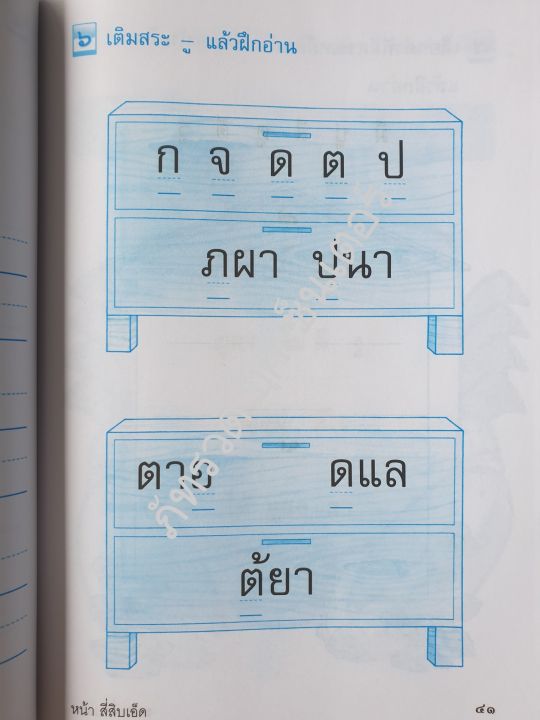 ๖ เติมสระ –ู แล้วฝึกอ่าน
ก จ ด ต ป
ภผา ปนา
ตาด ดแล
ต้ยา
หน้า สี่สิบเอ็ด ๔๑